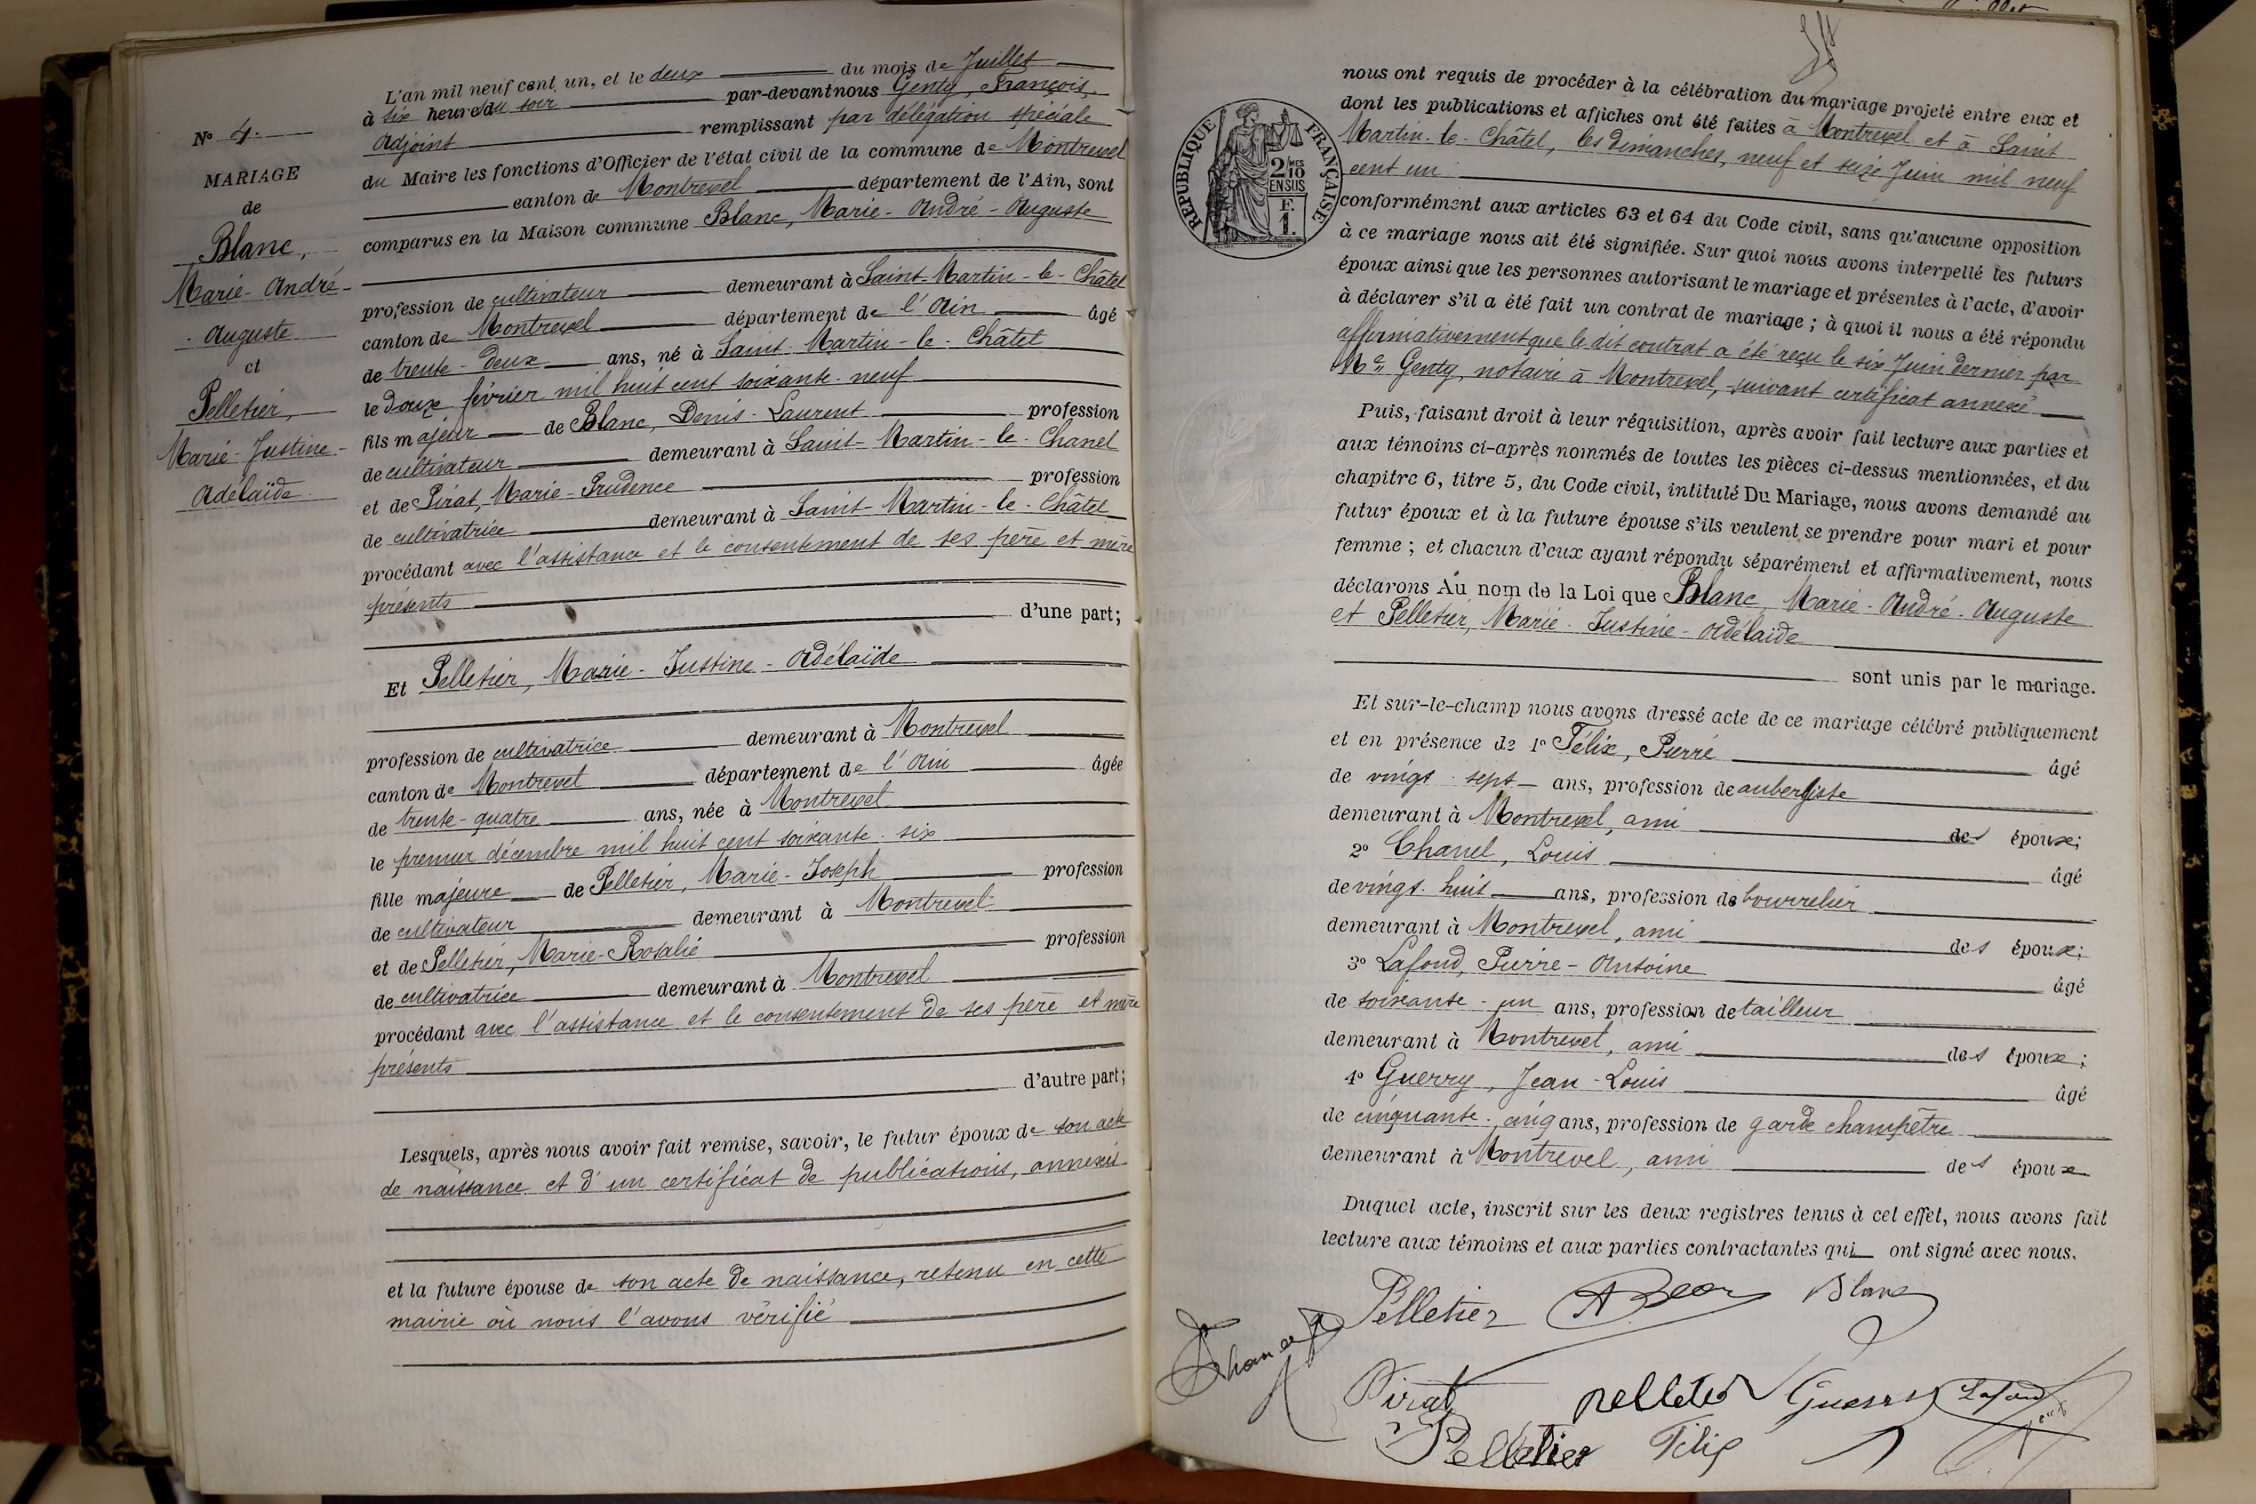 L'an mil neuf cent un, et le deux du mois de Juillet
à six heures du soir par-devant nous Genty, François,
Adjoint remplissant par délégation spéciale
du Maire les fonctions d'Officier de l'état civil de la commune de Montrevel
canton de Montrevel département de l'Ain, sont
comparus en la Maison commune Blanc, Marie-André-Auguste
profession de cultivateur demeurant à Saint-Martin-le-Châtel
canton de Montrevel département de l'Ain âgé
de trente-deux ans, né à Saint-Martin-le-Châtel
le douze février mil huit cent soixante-neuf
fils majeur de Blanc, Denis-Laurent profession
de cultivateur demeurant à Saint-Martin-le-Chanel
et de Pirat, Marie-Prudence profession
de cultivatrice demeurant à Saint-Martin-le-Châtel
procédant avec l'assistance et le consentement de ses père et mère
présents
d'une part;
Et Pelletier, Marie-Justine-Adélaïde
profession de cultivatrice demeurant à Montrevel
canton de Montrevel département de l'Ain âgée
de trente-quatre ans, née à Montrevel
le premier décembre mil huit cent soixante-six
fille majeure de Pelletier, Marie-Joseph profession
de cultivateur demeurant à Montrevel
et de Pelletier, Marie-Rosalie profession
de cultivatrice demeurant à Montrevel
procédant avec l'assistance et le consentement de ses père et mère
présents
d'autre part;
Lesquels, après nous avoir fait remise, savoir, le futur époux de son acte
de naissance et d'un certificat de publications, annexés
et la future épouse de son acte de naissance, retenu en cette
mairie où nous l'avons vérifié
N° 4.
MARIAGE
de
Blanc,
Marie-André-
-Auguste
et
Pelletier,
Marie-Justine-
Adélaïde
nous ont requis de procéder à la célébration du mariage projeté entre eux et
dont les publications et affiches ont été faites à Montrevel et à Saint
Martin-le-Châtel, les dimanches, neuf et seize Juin mil neuf
cent un
conformément aux articles 63 et 64 du Code civil, sans qu'aucune opposition
à ce mariage nous ait été signifiée. Sur quoi nous avons interpellé les futurs
époux ainsi que les personnes autorisant le mariage et présentes à l'acte, d'avoir
à déclarer s'il a été fait un contrat de mariage; à quoi il nous a été répondu
affirmativement que le dit contrat a été reçu le six Juin dernier par
Me Genty, notaire à Montrevel, suivant certificat annexé
Puis, faisant droit à leur réquisition, après avoir fait lecture aux parties et
aux témoins ci-après nommés de toutes les pièces ci-dessus mentionnées, et du
chapitre 6, titre 5, du Code civil, intitulé Du Mariage, nous avons demandé au
futur époux et à la future épouse s'ils veulent se prendre pour mari et pour
femme; et chacun d'eux ayant répondu séparément et affirmativement, nous
déclarons Au nom de la Loi que Blanc, Marie-André-Auguste
et Pelletier, Marie-Justine-Adélaïde
sont unis par le mariage.
Et sur-le-champ nous avons dressé acte de ce mariage célébré publiquement
et en présence de 1° Félix, Pierre âgé
de vingt-sept ans, profession de aubergiste
demeurant à Montrevel, ami des époux;
2° Chanel, Louis âgé
de vingt-huit ans, profession de bourrelier
demeurant à Montrevel, ami des époux;
3° Lafond, Pierre-Antoine âgé
de soixante-un ans, profession de tailleur
demeurant à Montrevel, ami des époux;
4° Guerry, Jean-Louis âgé
de cinquante-cinq ans, profession de garde champêtre
demeurant à Montrevel, ami des époux
Duquel acte, inscrit sur les deux registres tenus à cet effet, nous avons fait
lecture aux témoins et aux parties contractantes qui ont signé avec nous.
Pelletier Blanc
Chanel
Pirat pelletier Guerry Lafond
Pelletier Félix
RÉPUBLIQUE FRANÇAISE
2/10 MES
EN SUS
F.
1.